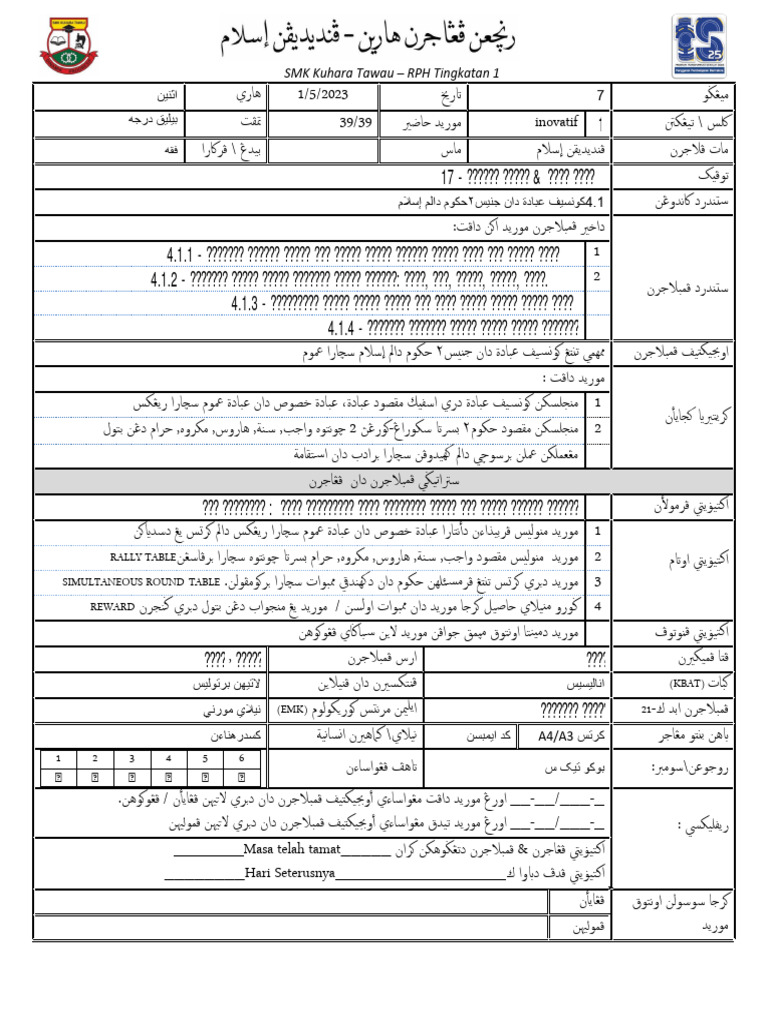 رنچڠن ڤڠاجرن هارين - ڤنديديقن إسلام
SMK Kuhara Tawau – RPH Tingkatan 1
ميڠݢو 7 تاريخ 1/5/2023 هاري اثنين
كلس \ تيڠكتن 1 inovatif موريد حاضير 39/39 تمڤت بيليق درجه
مات ڤلاجرن ڤنديديقن إسلام ماس بيدڠ \ ڤركارا فقه
توڤيک ???? ???? & ????? ?????? - 17
ستندرد كاندوڠن 4.1كونسيف عبادة دان جنيس٢حكوم دالم إسلام
ستندرد ڤمبلاجرن
داخير ڤمبلاجرن موريد اكن داڤت:
1 4.1.1 - ??????? ?????? ????? ??? ????? ????? ?????? ????? ???? ??? ????? ????
2 4.1.2 - ??????? ????? ????? ??????? ????? ??????: ????, ???, ?????, ?????, ????.
4.1.3 - ????????? ????? ????? ????? ??? ???? ????? ????? ????? ?????
4.1.4 - ??????? ??????? ????? ????? ????? ???????
اوبجيكتيف ڤمبلاجرن ممهمي تنتڠ كونسيف عبادة دان جنيس٢ حكوم دالم إسلام سچارا عموم
كريتيريا كجاياٴن
موريد داڤت :
1 منجلسكن كونسيف عبادة دري اسڤيك مقصود عبادة، عبادة خصوص دان عبادة عموم سچارا ريڠكس
2 منجلسكن مقصود حكوم٢ بسرتا سكوراڠ-كورڠن 2 چونتوه واجب, سنة, هاروس, مكروه, حرام دڠن بتول
مڠعملكن عملن برسوچي دالم كهيدوڤن سچارا برادب دان استقامة
ستراتيݢي ڤمبلاجرن دان ڤڠاجرن
اكتيۏيتي ڤرمولاٴن ?????? ?????? ????? ???? ??? ???????? ???? ????????? ???? : ???????? ???
اكتيۏيتي اوتام
1 موريد منوليس ڤربيذاءن دأنتارا عبادة خصوص دان عبادة عموم سچارا ريڠكس دالم كرتس يڠ دسدياكن
2 موريد منوليس مقصود واجب, سنة, هاروس, مكروه, حرام بسرتا چونتوه سچارا برڤاسڠن RALLY TABLE
3 موريد دبري كرتس تنتڠ ڤرمسئلهن حكوم دان دكهندقي ممبوات سچارا بركومڤولن. SIMULTANEOUS ROUND TABLE
4 ݢورو منيلاي حاصيل كرجا موريد دان ممبوات اولسن / موريد يڠ منجواب دڠن بتول دبري ݢنجرن REWARD
اكتيۏيتي ڤنوتوڤ موريد دمينتا اونتوق ميمق جواڤن موريد لاين سباݢاي ڤڠوكوهن
ڤتا ڤميكيرن ????. ارس ڤمبلاجرن ????? , ????
كبات (KBAT) اناليسيس ڤنتكسيرن دان ڤنيلاين لاتيهن برتوليس
ڤمبلاجرن ابد ك-21 ???? ??????? ايليمن مرنتس كوريكولوم (EMK) نيلاي مورني
باهن بنتو مڠاجر كرتس A4/A3 كد ايمبسن نيلاي\كماهيرن انسانية كسدر هناءن
روجوعن\سومبر: بوكو تيک س تاهڤ ڤڠواساءن 1 2 3 4 5 6
ريفليكسي :
_-____/___-___ اورڠ موريد داڤت مڠواساءي أوبجيكتيف ڤمبلاجرن دان دبري لاتيهن ڤڠاياٴن / ڤڠوكوهن.
_-____/___-___ اورڠ موريد تيدق مڠواساءي أوبجيكتيف ڤمبلاجرن دان دبري لاتيهن ڤموليهن
أكتيۏيتي ڤڠاجرن & ڤمبلاجرن دتڠݢوهكن كران _______Masa telah tamat__________
أكتيۏيتي ڤدڤ دباوا ك________________________Hari Seterusnya___________
كرجا سوسولن اونتوق موريد
ڤڠاياٴن
ڤموليهن